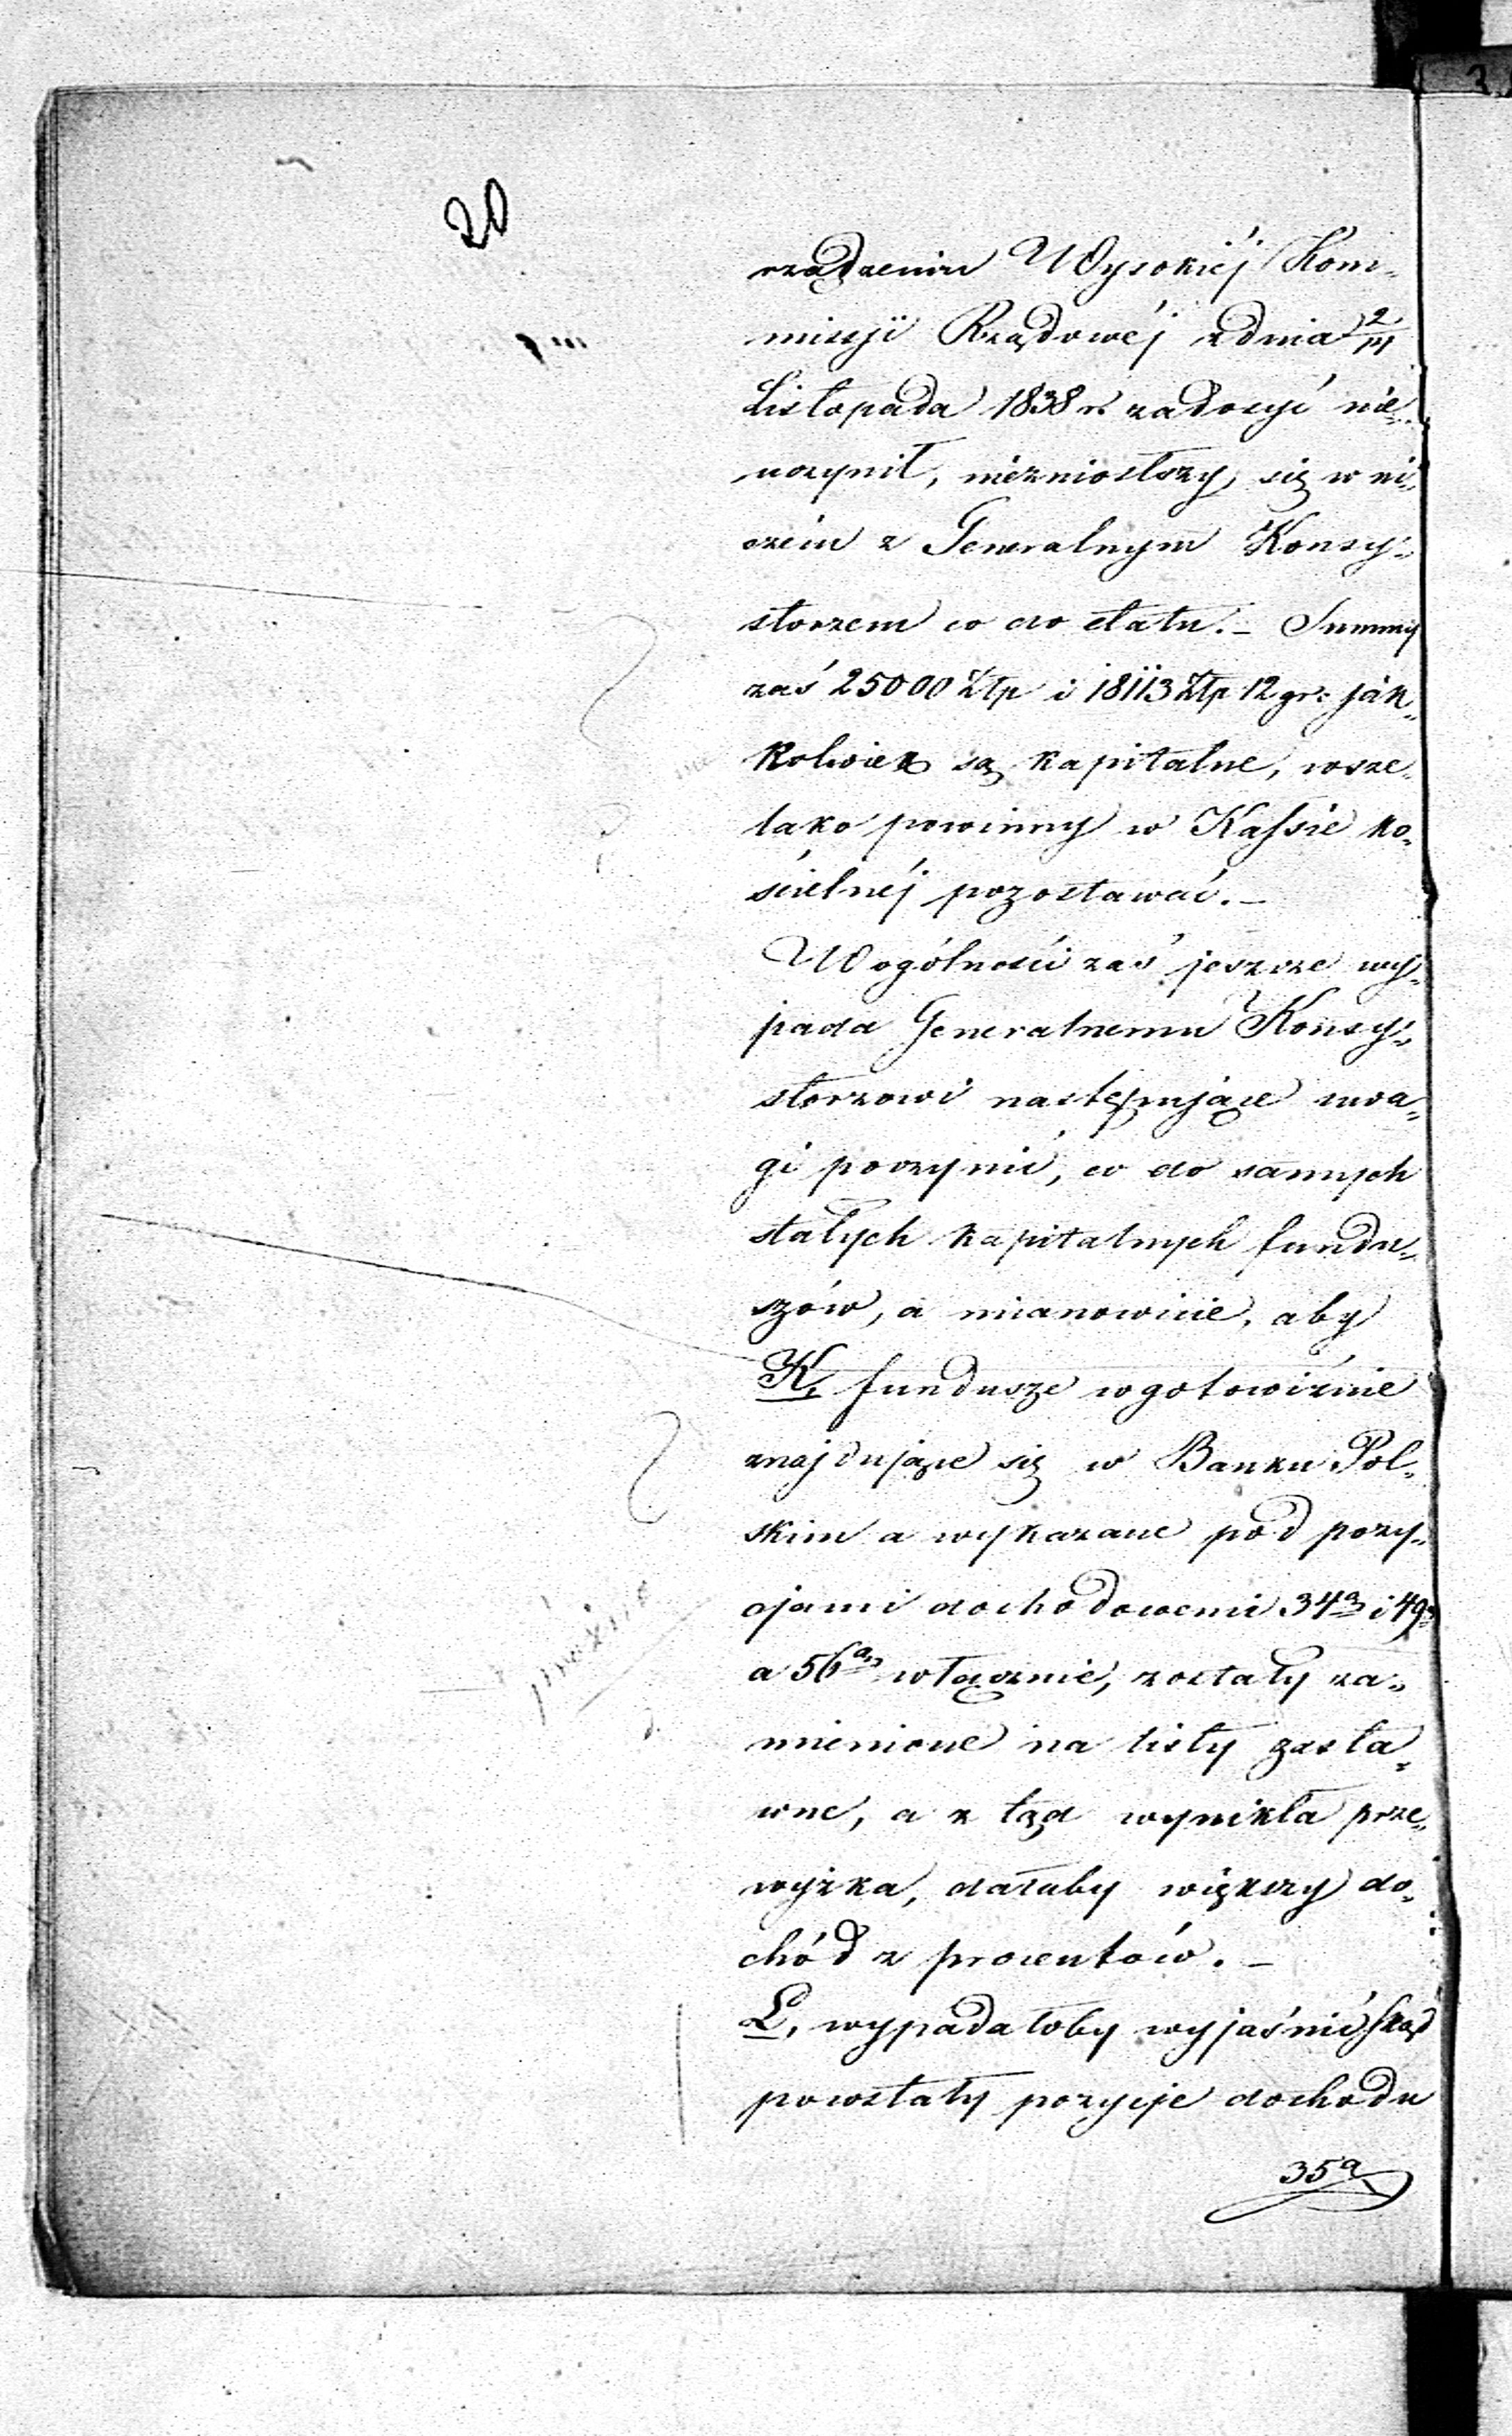 20
rządzeniu Wysokiéj Kom„
missyi Rządowéj z dnia 2/14
Listopada 1838 r. zadosyć nie„
uczynił, niezniosłszy się w ni„
czém z Generalnym Konsy„
storzem co do etatu. – Summy
zaś 25000 Złp i 18113 Złp 12 gr: jak„
kolwiek są kapitalne, wsze„
lako powinny w Kassie ko„
ścielnéj pozostawać. –
W ogólności zaś jeszcze wy„
pada Generalnemu Konsy„
storzowi następujące uwa„
gi poczynić, co do samych
stałych kapitalnych fundu„
szów, a mianowicie, aby
K, fundusze w gotowiźnie
znajdujące się w Banku Pol„
skim a wykazane pod pozy„
cjami dochodowemi 34a i 49a
a 56a włącznie, zostały za„
mienione na listy zasta„
wne, a z tąd wynikła prze„
wyżka, dałaby większy do„
chód z procentów. –
L, wypadałoby wyjaśnić skąd
powstały pozycje dochodu
35a